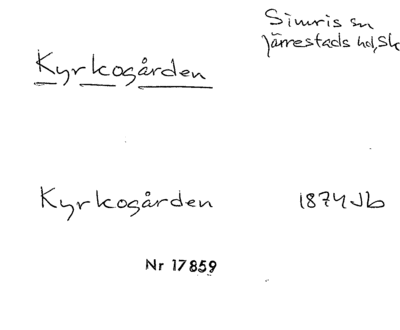 Kyrkogården
Simris sn
Järrestads hd, Sk
Kyrkogården
1874 Jb
Nr 17859